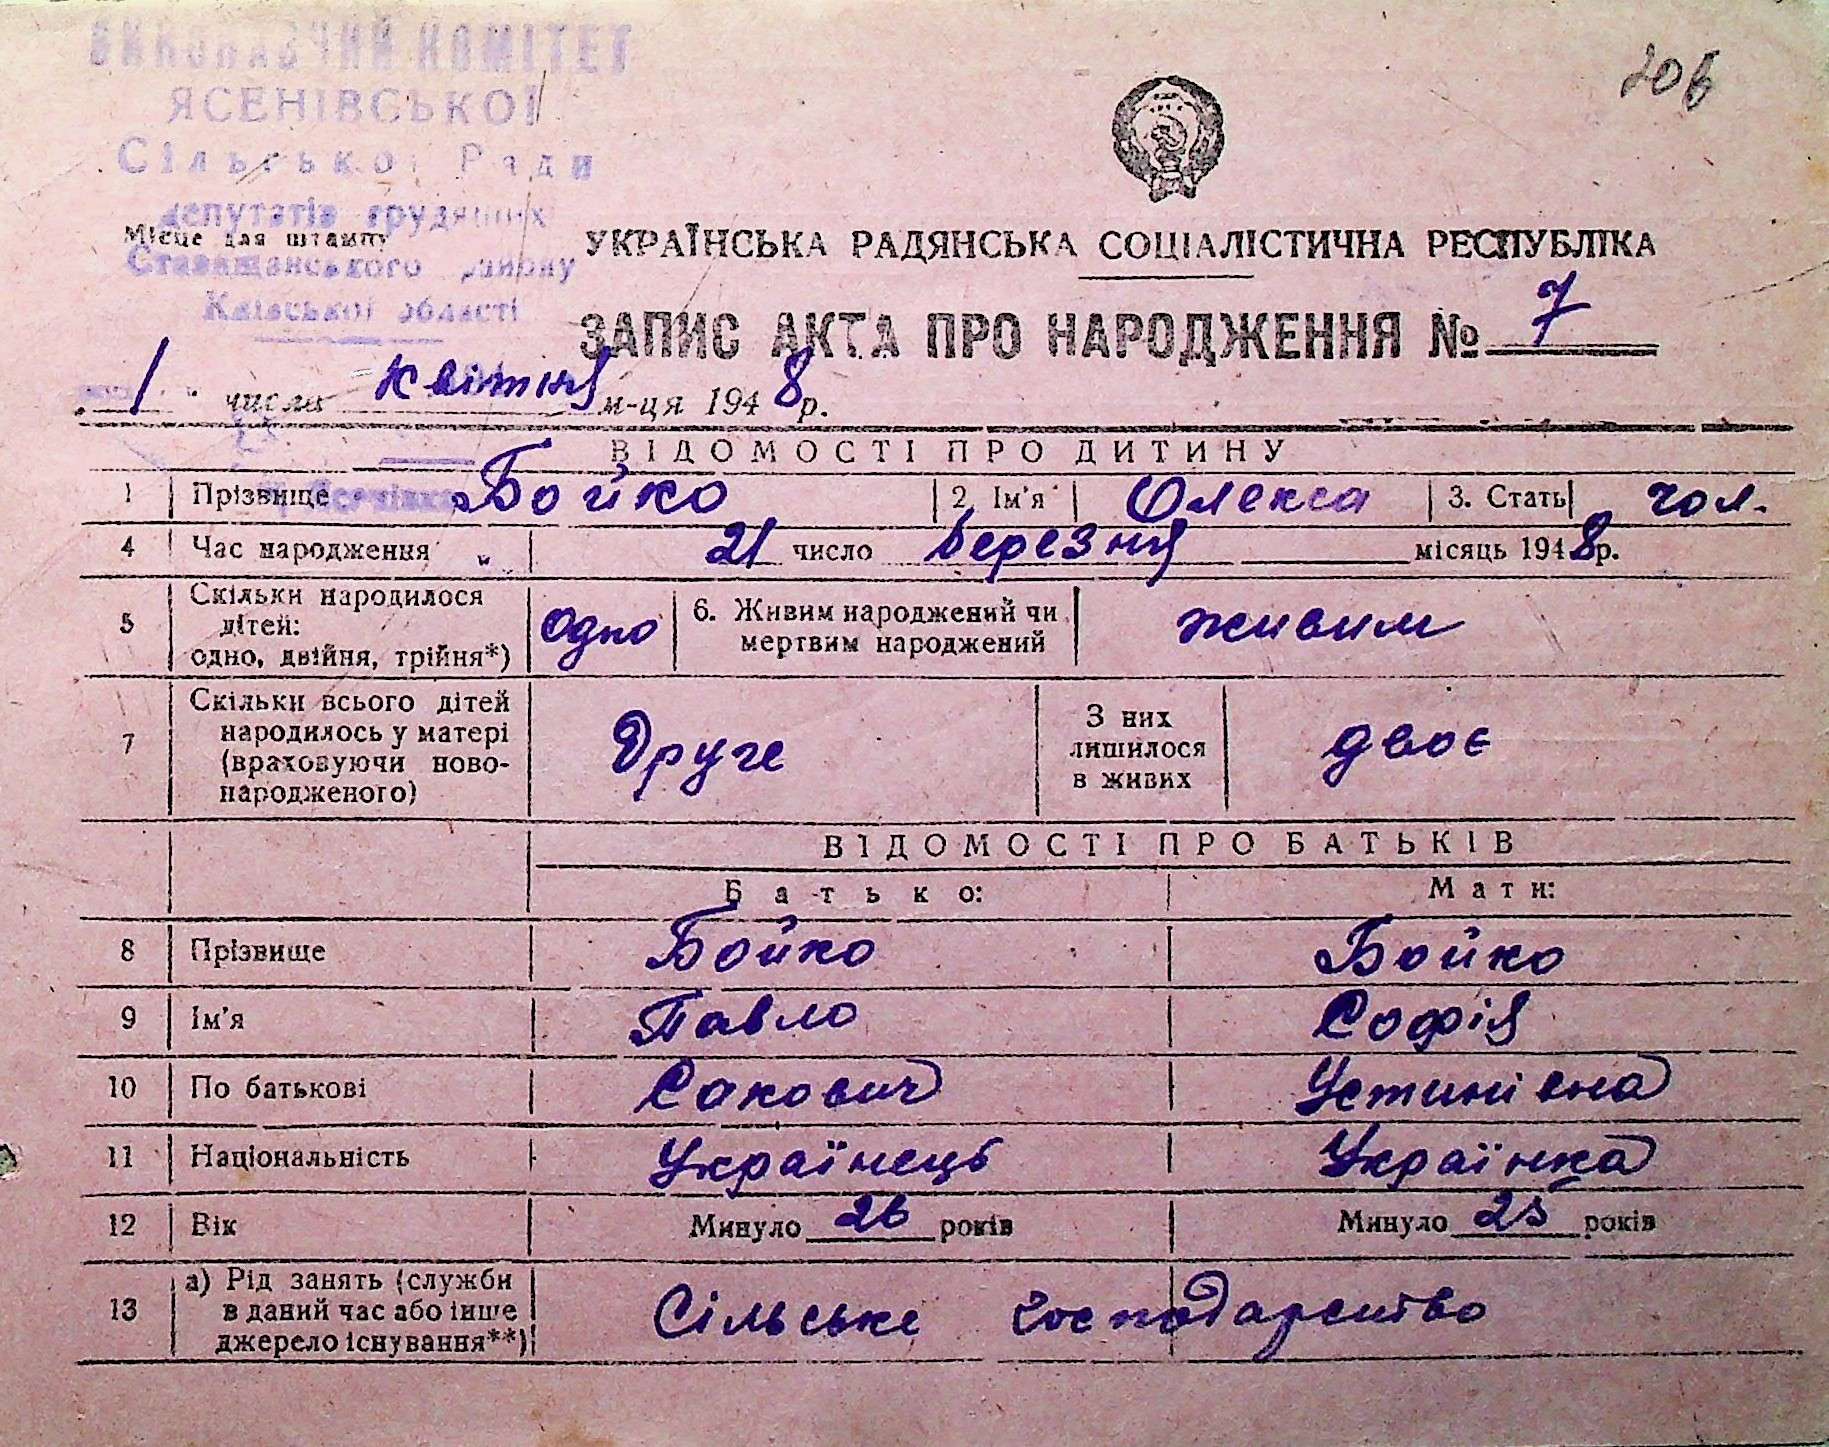 ВИКОНАВЧИЙ КОМІТЕТ
ЯСЕНІВСЬКОЇ
Сільської Ради
депутатів трудящих
Місце для штампу
Ставищанського району
Київської області
206
УКРАЇНСЬКА РАДЯНСЬКА СОЦІАЛІСТИЧНА РЕСПУБЛІКА
ЗАПИС АКТА ПРО НАРОДЖЕННЯ № 7
1 числа квітня м-ця 1948 р.
ВІДОМОСТІ ПРО ДИТИНУ
1 Прізвище Бойко 2. Ім'я Олекса 3. Стать чол.
4 Час народження 21 число березня місяць 1948 р.
5 Скільки народилося дітей: одно, двійня, трійня*) одно 6. Живим народжений чи мертвим народжений живим
7 Скільки всього дітей народилось у матері (враховуючи ново-народженого) Друге З них лишилося в живих двоє
ВІДОМОСТІ ПРО БАТЬКІВ
Батько: Мати:
8 Прізвище Бойко Бойко
9 Ім'я Павло Софія
10 По батькові Сакович Устинівна
11 Національність Українець Українка
12 Вік Минуло 26 років Минуло 25 років
13 а) Рід занять (служби в даний час або інше джерело існування**) Сільське господарство